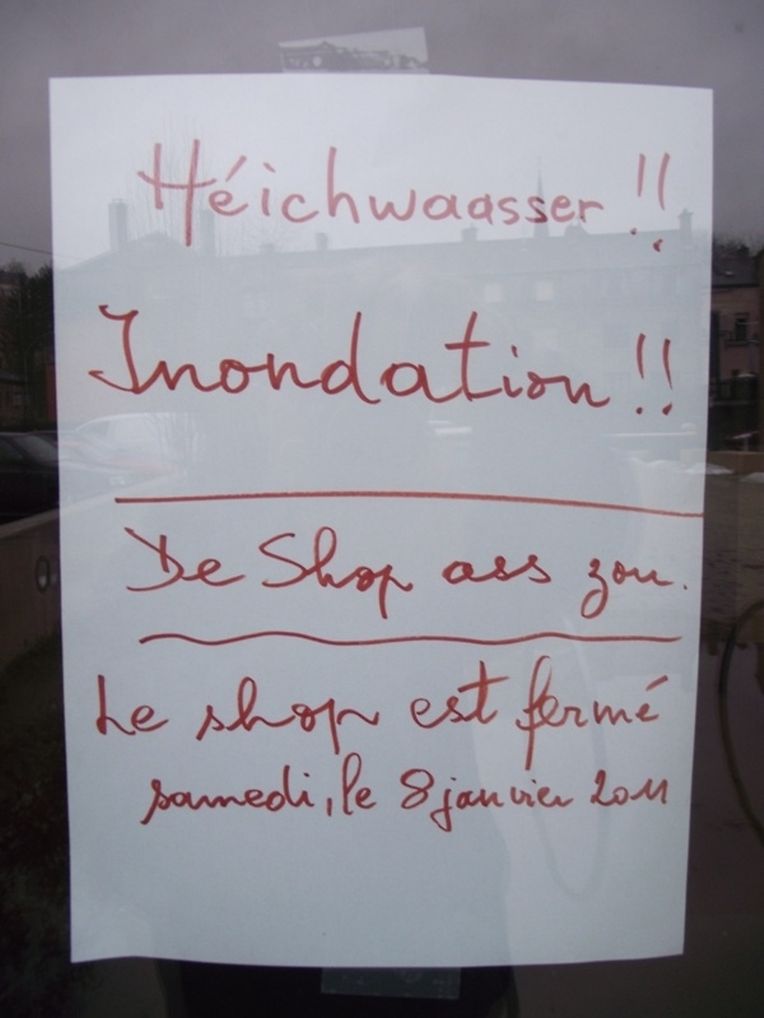 Héichwaasser !!
Inondation !!
De Shop ass zou.
Le shop est fermé
samedi, le 8 janvier 2011